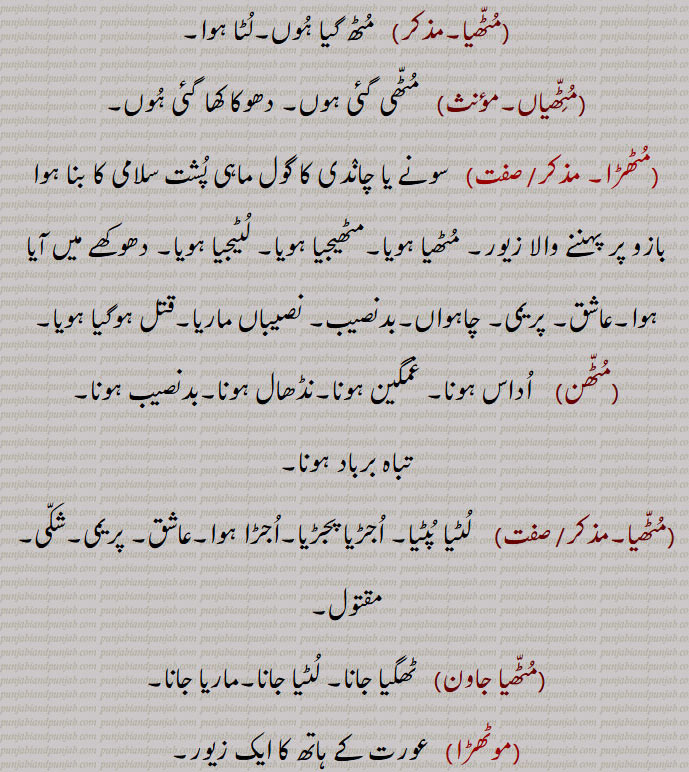 (مُٹّھیا۔مذکر) مُٹھ گیا ہُوں۔لُٹا ہوا۔
(مُٹِّھیاں۔مؤنث) مُٹّھی گئی ہوں۔ دھوکا کھا گئی ہُوں۔
(مُٹّھڑا۔ مذکر/صفت) سونے یا چانْدی کا گول ماہی پُشت سلامی کا بنا ہوا
بازو پر پہننے والا زیور۔ مُٹھیا ہویا۔مٹھیجیا ہویا۔ لُٹیجیا ہویا۔ دھوکھے میں آیا
ہوا۔عاشق۔ پریمی۔ چاہواں۔بدنصیب۔ نصیباں ماریا۔قتل ہوگیا ہویا۔
(مُٹّھن) اُداس ہونا۔ غمگین ہونا۔نڈھال ہونا۔بدنصیب ہونا۔
تباہ برباد ہونا۔
(مُٹّھیا۔مذکر/صفت) لُٹیا پُٹیا۔ اُجڑیا پجڑیا۔اُجڑا ہوا۔عاشق۔ پریمی۔شکّی۔
مقتول۔
(مُٹّھیا جاون) ٹھگیا جانا۔ لُٹیا جانا۔ماریا جانا۔
(موٹھڑا) عورت کے ہاتھ کا ایک زیور۔